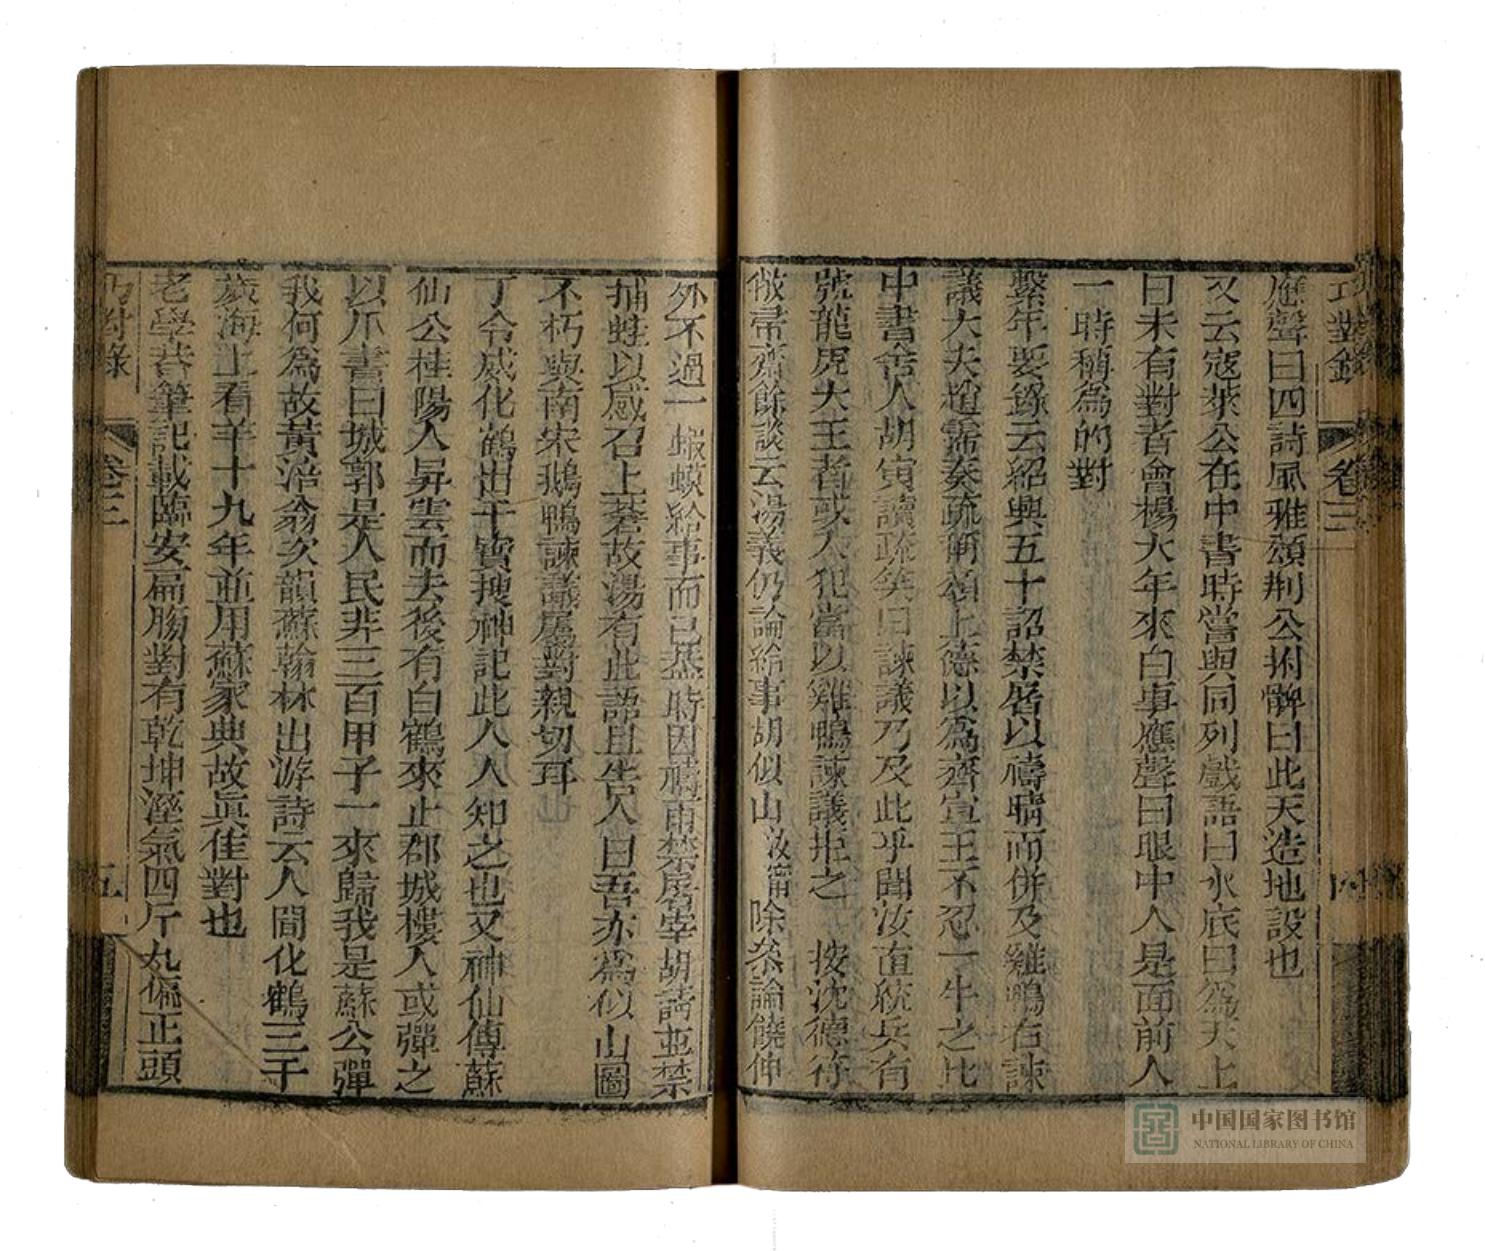 巧對錄 卷三
應聲曰四詩風雅頌荆公拊髀曰此天造地設也
又云寇萊公在中書時嘗與同列戲語曰水底日爲天上
日未有對者會楊大年來白事應聲曰眼中人是面前人
一時稱爲的對
繫年要錄云紹興五十詔禁屠以禱晴而併及雞鴨右諫
議大夫趙霈奏疏頌上德以爲齊宣王不忍一牛之比
中書舍人胡寅讀疏笑曰諫議乃及此乎聞汝直統兵有
號龍虎大王者或入犯當以雞鴨諫議拒之 按沈德符
敝帚齋餘談云湯義仍論給事胡似山汝甯除叅論饒伸
外不過一蝦蟆給事而已蓋時因禱雨禁屠宰胡請並禁
捕蛙以感召上蒼故湯有此語且告人曰吾亦爲似山圖
不朽與南宋鵝鴨諫議屬對親切耳
丁令威化鶴出干寶搜神記此人人知之也又神仙傳蘇
仙公桂陽人昇雲而去後有白鶴來止郡城樓人或彈之
以爪書曰城郭是人民非三百甲子一來歸我是蘇公彈
我何爲故黃涪翁次韻蘇翰林出游詩云人間化鶴三千
歲海上看羊十九年並用蘇家典故眞佳對也
老學菴筆記載臨安扁牓對有乾坤溼氣四斤丸偏正頭
巧對錄 卷三 五
中国国家图书馆
NATIONAL LIBRARY OF CHINA